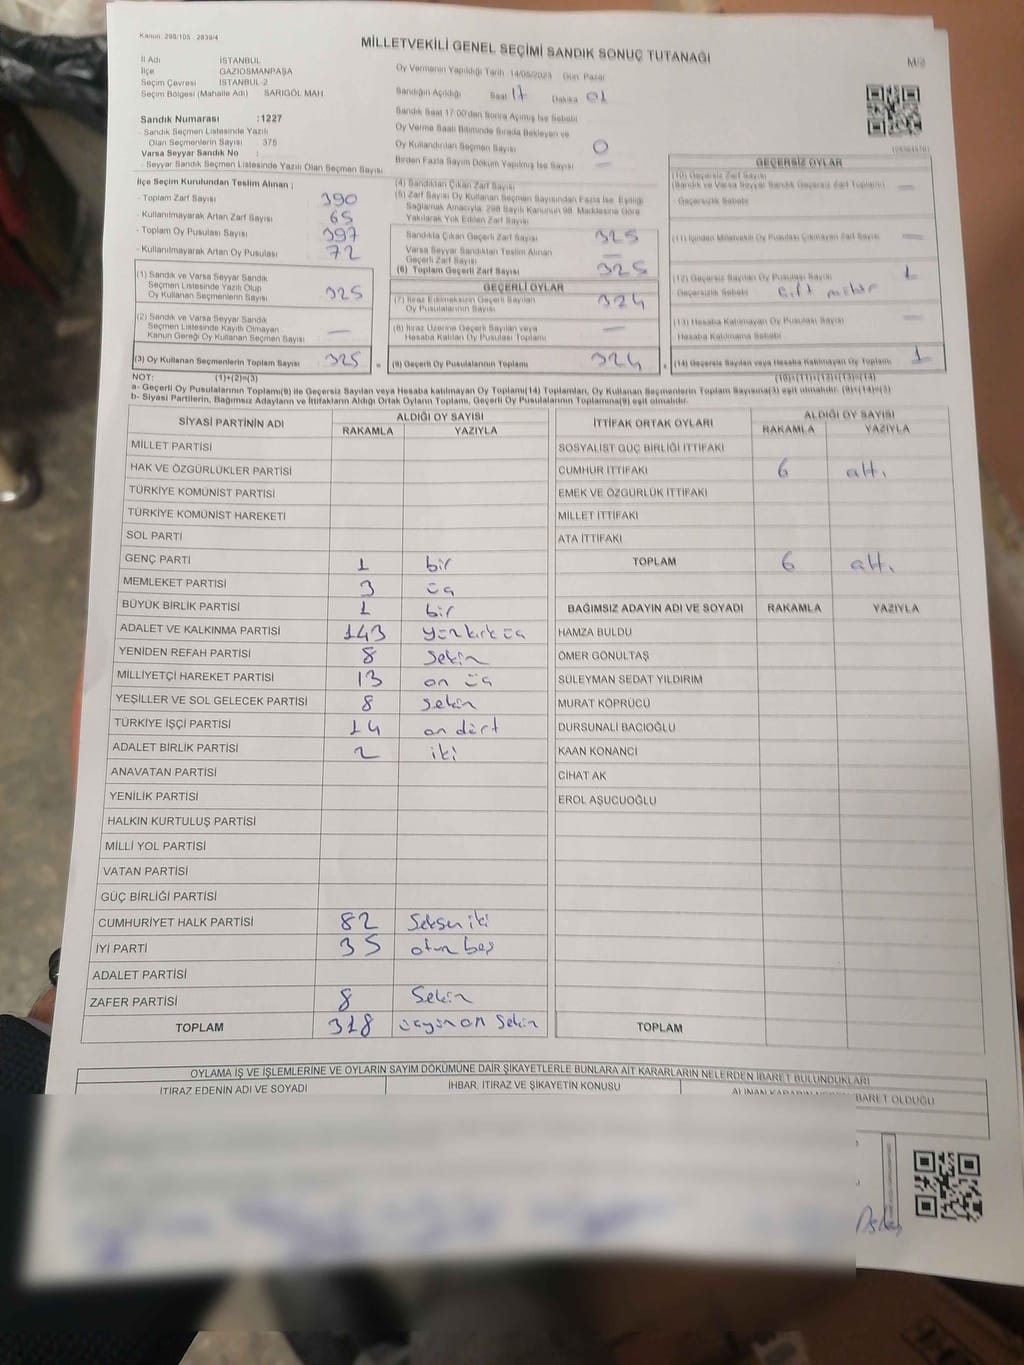 Kanun: 298/105 2839/4
MİLLETVEKİLİ GENEL SEÇİMİ SANDIK SONUÇ TUTANAĞI
İl Adı İSTANBUL
İlçe GAZİOSMANPAŞA
Seçim Çevresi İSTANBUL-2
Seçim Bölgesi (Mahalle Adı) SARIGÖL MAH.
Sandık Numarası :1227
- Sandık Seçmen Listesinde Yazılı
Olan Seçmenlerin Sayısı : 375
Varsa Seyyar Sandık No :
- Seyyar Sandık Seçmen Listesinde Yazılı Olan Seçmen Sayısı
Oy Vermenin Yapıldığı Tarih 14/05/2023 Gün Pazar
Sandığın Açıldığı Saat 17 Dakika 01
Sandık Saat 17.00'den Sonra Açılmış İse Sebebi
Oy Verme Saati Bitiminde Sırada Bekleyen ve
Oy Kullandırılan Seçmen Sayısı 0
Birden Fazla Sayım Döküm Yapılmış İse Sayısı —
İlçe Seçim Kurulundan Teslim Alınan ;
- Toplam Zarf Sayısı 390
- Kullanılmayarak Artan Zarf Sayısı 65
- Toplam Oy Pusulası Sayısı 397
- Kullanılmayarak Artan Oy Pusulası 72
(1) Sandık ve Varsa Seyyar Sandık
Seçmen Listesinde Yazılı Olup
Oy Kullanan Seçmenlerin Sayısı 325
(2) Sandık ve Varsa Seyyar Sandık
Seçmen Listesinde Kayıtlı Olmayan
Kanun Gereği Oy Kullanan Seçmen Sayısı —
(3) Oy Kullanan Seçmenlerin Toplam Sayısı 325 =
(4) Sandıktan Çıkan Zarf Sayısı
(5) Zarf Sayısı Oy Kullanan Seçmen Sayısından Fazla İse, Eşitliği
Sağlamak Amacıyla, 298 Sayılı Kanunun 98. Maddesine Göre
Yakılarak Yok Edilen Zarf Sayısı
Sandıkta Çıkan Geçerli Zarf Sayısı 325
Varsa Seyyar Sandıktan Teslim Alınan
Geçerli Zarf Sayısı —
(6) Toplam Geçerli Zarf Sayısı 325
GEÇERLİ OYLAR
(7) İtiraz Edilmeksizin Geçerli Sayılan
Oy Pusulalarının Sayısı 324
(8) İtiraz Üzerine Geçerli Sayılan veya
Hesaba Katılan Oy Pusulası Toplamı —
(9) Geçerli Oy Pusulalarının Toplamı 324 +
GEÇERSİZ OYLAR
(10) Geçersiz Zarf Sayısı
(Sandık ve Varsa Seyyar Sandık Geçersiz Zarf Toplamı) —
- Geçersizlik Sebebi
(11) İçinden Milletvekili Oy Pusulası Çıkmayan Zarf Sayısı —
(12) Geçersiz Sayılan Oy Pusulası Sayısı 1
Geçersizlik Sebebi çift mühür
(13) Hesaba Katılmayan Oy Pusulası Sayısı —
Hesaba Katılmama Sebebi
(14) Geçersiz Sayılan veya Hesaba Katılmayan Oy Toplamı 1
NOT: (1)+(2)=(3) (10)+(11)+(12)+(13)=(14)
a- Geçerli Oy Pusulalarının Toplamı(9) ile Geçersiz Sayılan veya Hesaba katılmayan Oy Toplamı(14) Toplamları, Oy Kullanan Seçmenlerin Toplam Sayısına(3) eşit olmalıdır. (9)+(14)=(3)
b- Siyasi Partilerin, Bağımsız Adayların ve İttifakların Aldığı Ortak Oyların Toplamı, Geçerli Oy Pusulalarının Toplamına(9) eşit olmalıdır.
SİYASİ PARTİNİN ADI ALDIĞI OY SAYISI
RAKAMLA YAZIYLA
MİLLET PARTİSİ
HAK VE ÖZGÜRLÜKLER PARTİSİ
TÜRKİYE KOMÜNİST PARTİSİ
TÜRKİYE KOMÜNİST HAREKETİ
SOL PARTİ
GENÇ PARTİ 1 bir
MEMLEKET PARTİSİ 3 üç
BÜYÜK BİRLİK PARTİSİ 1 bir
ADALET VE KALKINMA PARTİSİ 143 yüzkırküç
YENİDEN REFAH PARTİSİ 8 sekiz
MİLLİYETÇİ HAREKET PARTİSİ 13 on üç
YEŞİLLER VE SOL GELECEK PARTİSİ 8 sekiz
TÜRKİYE İŞÇİ PARTİSİ 14 on dört
ADALET BİRLİK PARTİSİ 2 iki
ANAVATAN PARTİSİ
YENİLİK PARTİSİ
HALKIN KURTULUŞ PARTİSİ
MİLLİ YOL PARTİSİ
VATAN PARTİSİ
GÜÇ BİRLİĞİ PARTİSİ
CUMHURİYET HALK PARTİSİ 82 seksen iki
İYİ PARTİ 35 otuz beş
ADALET PARTİSİ
ZAFER PARTİSİ 8 sekiz
TOPLAM 318 üçyüz on sekiz
İTTİFAK ORTAK OYLARI ALDIĞI OY SAYISI
RAKAMLA YAZIYLA
SOSYALİST GÜÇ BİRLİĞİ İTTİFAKI
CUMHUR İTTİFAKI 6 altı
EMEK VE ÖZGÜRLÜK İTTİFAKI
MİLLET İTTİFAKI
ATA İTTİFAKI
TOPLAM 6 altı
BAĞIMSIZ ADAYIN ADI VE SOYADI RAKAMLA YAZIYLA
HAMZA BULDU
ÖMER GÖNÜLTAŞ
SÜLEYMAN SEDAT YILDIRIM
MURAT KÖPRÜCÜ
DURSUNALİ BACIOĞLU
KAAN KONANCİ
CİHAT AK
EROL AŞUCUOĞLU
TOPLAM
OYLAMA İŞ VE İŞLEMLERİNE VE OYLARIN SAYIM DÖKÜMÜNE DAİR ŞİKAYETLERLE BUNLARA AİT KARARLARIN NELERDEN İBARET BULUNDUKLARI
İTİRAZ EDENİN ADI VE SOYADI İHBAR, İTİRAZ VE ŞİKAYETİN KONUSU
İBARET OLDUĞU